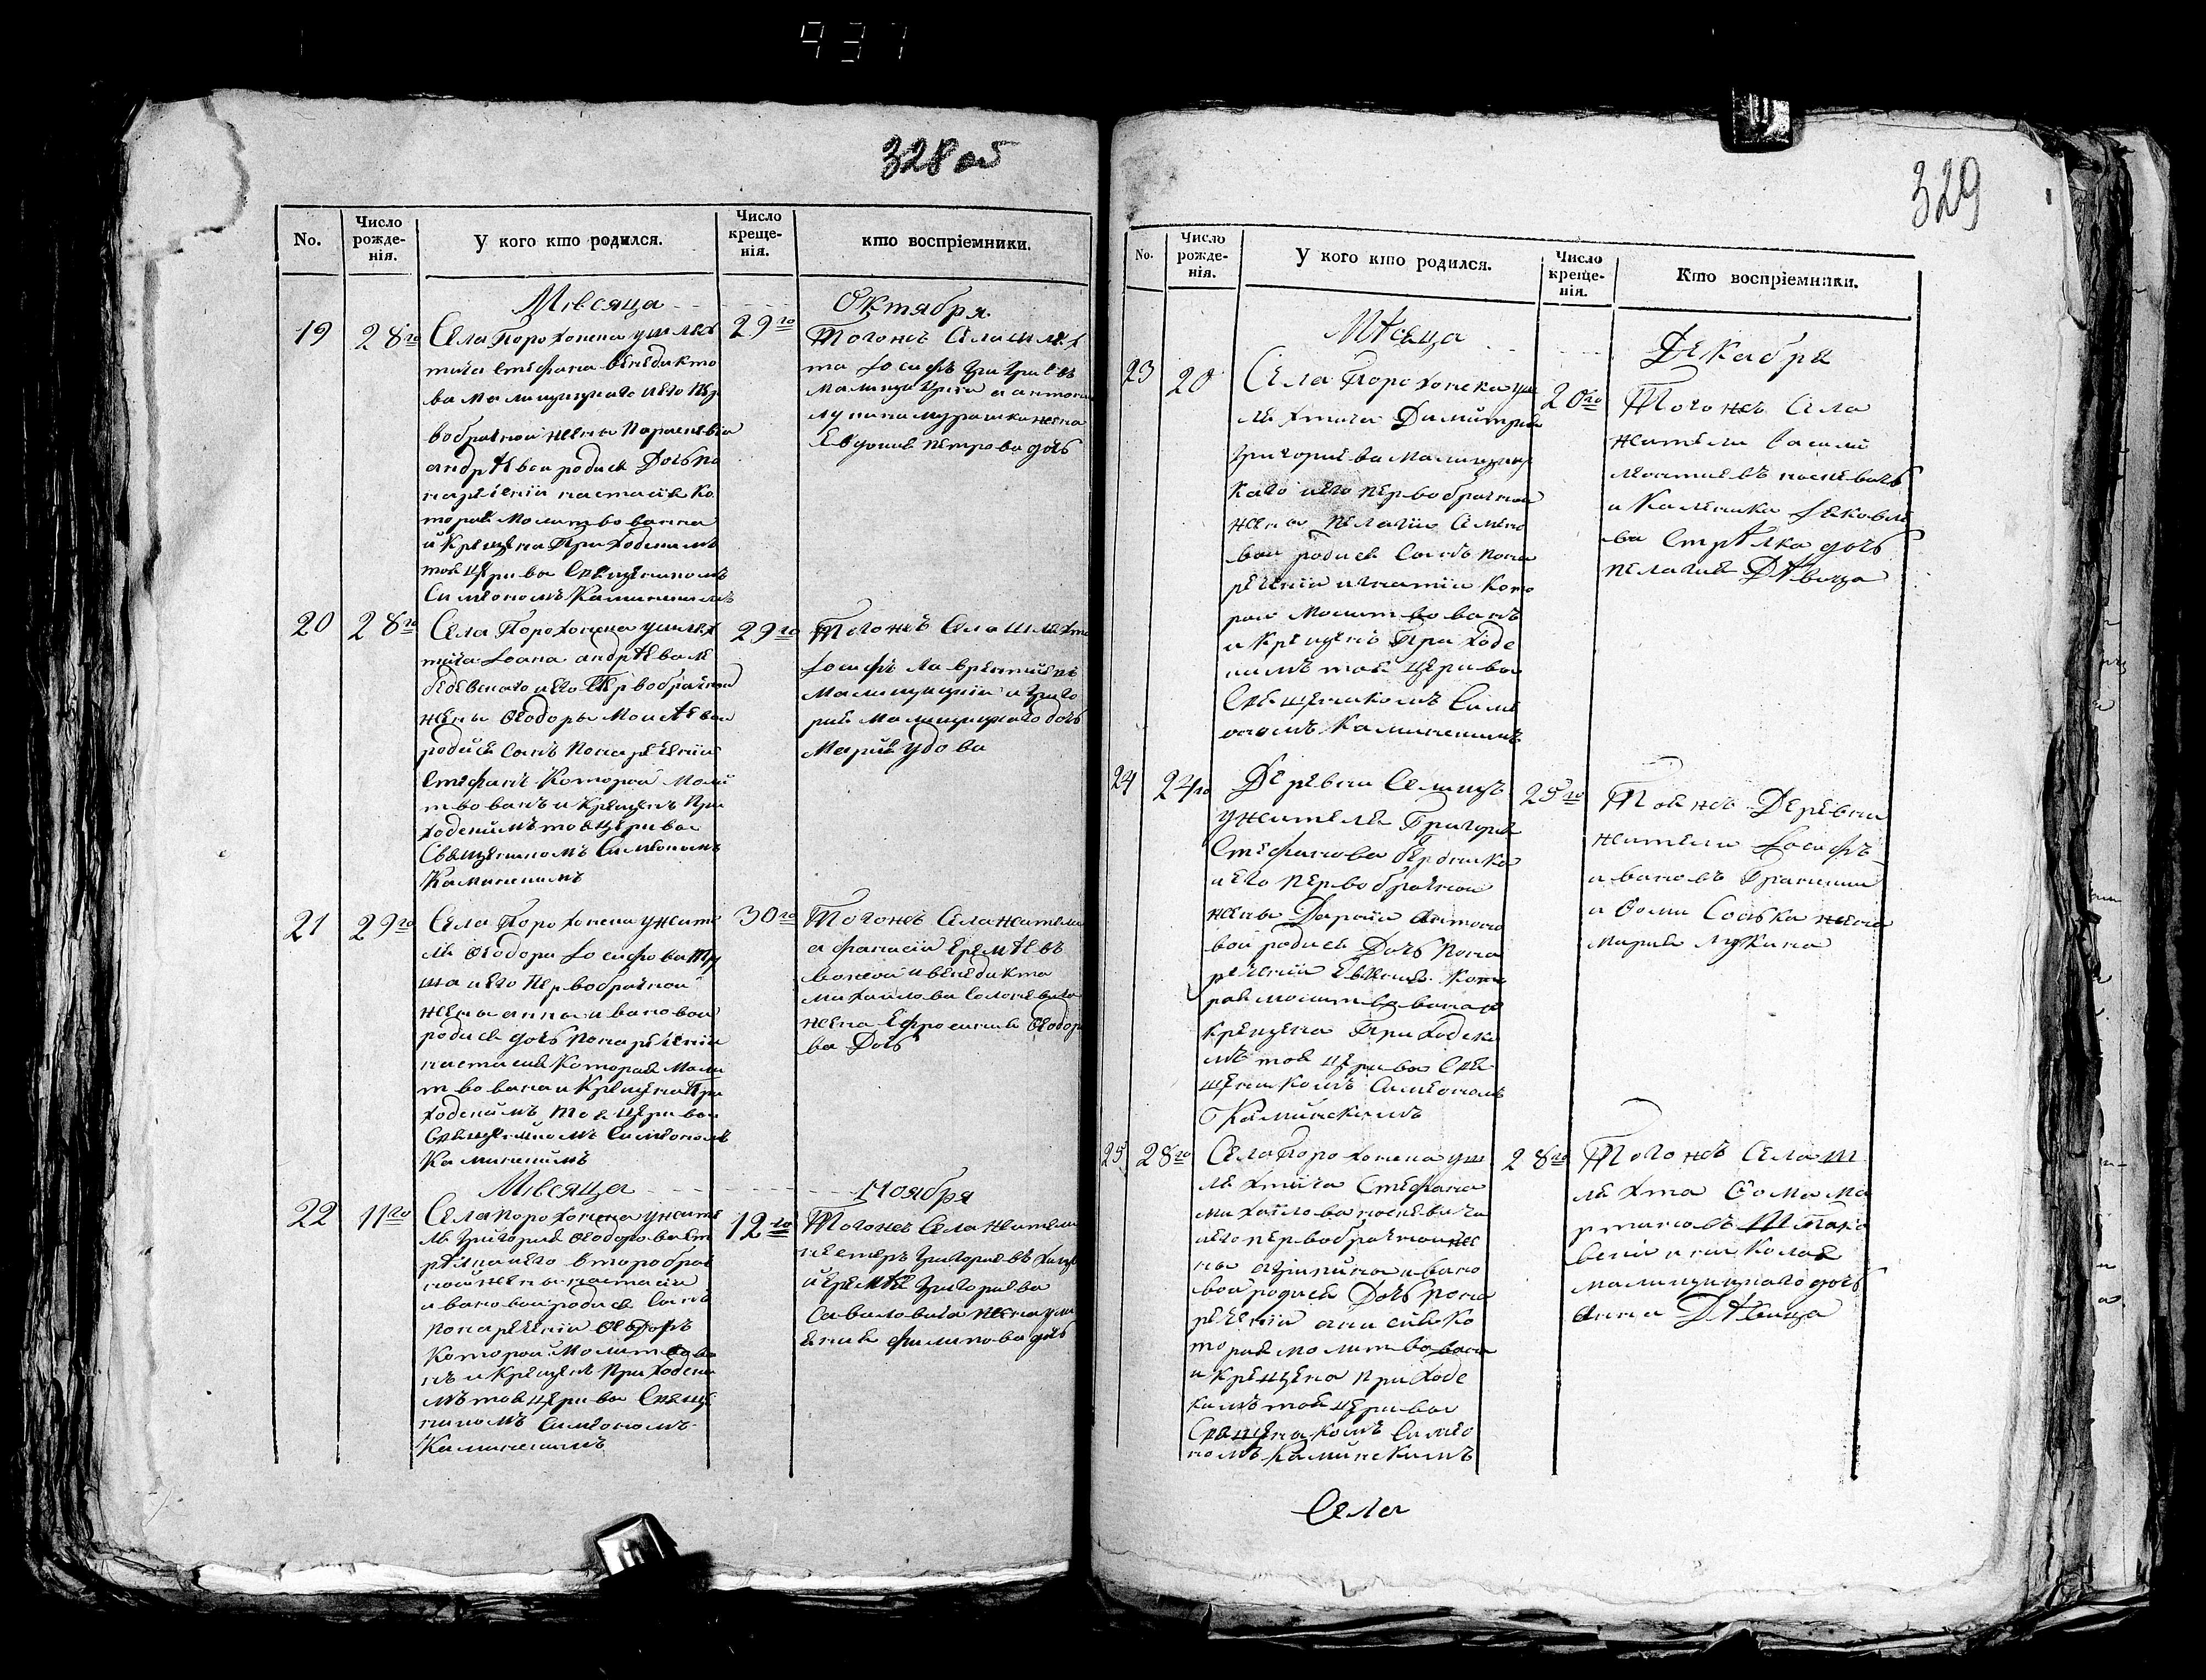 937
328 об
No.
Число рожде-нія.
У кого кто родился.
Число креще-нія.
кто воспріемники.
Мѣсяца
Октября
19
28го
Села Порохонска ушлях
тича Стефана Венедикто
ва Малищицкаго иего пер
вобрачной жены Параскевіи
андрѣевой родися Дочь по
наречении настасія Ко
торая Молитвованна
и Крещена Приходскимъ
тоя церкви Священикомъ
Симеономъ Каминскимъ
29го
Тогожъ Села шлях
та Іосифъ Григориевъ
Малищицкій и антони
лукина мурашки жена
Евдокія петрова дочь
20
28го
Села Порохонска ушлях
тича Іоана андрѣева Ле
бедевскаго иего Первобрачной
жены Феодоры Моисѣевой
родися Сынъ Понаречении
Стефанъ Который Моли
твованъ и Крещенъ При
ходскимъ тоя церкви
Священикомъ Симеономъ
Каминскимъ
29го
Тогожъ Села Шляхта
Іосифъ Лаврентиевъ
Малищицкій и Григо
рия Малищицкаго дочь
Мария удова
21
29го
Села Порохонска ужите
ля Феодора Іосифова
иего Первобрачной
жены анны ивановой
родися дочь Понаречении
настасия Которая Моли
твована и Крещена При
ходскимъ тоя церкви
Священикомъ Симеономъ
Каминскимъ
30го
Тогожъ Села жители
афанасій Еремѣевъ
и венедикта
михайлова
жена Ефросиния Феодоро
ва Дочь
Мѣсяца
Ноября
22
11го
Села порохонска ужите
ля Григория Феодорова Ст
рѣлки иего второбрач
ной жены настасіи
ивановой родися Сынъ
Понаречении Феодоръ
Которой Молитвова
нъ и Крещенъ Приходски
мъ тоя церкви Свяще
никомъ Симеономъ
Каминскимъ
12го
Тогожъ Села Жители
нестеръ Григориевъ
и Еремѣя Григориева
жена
филипова дочь
329
No.
Число рожде-нія.
У кого кто родился.
Число креще-нія.
Кто воспріемники.
Мѣсяца
Декабря
23
20
Села Порохонска уш
ляхтича Димитрия
Григориева Малищиц
каго иего первобрачной
жены пелагии Семено
вой родися Сынъ пона
речении игнатіи Кото
рый Молитвованъ
и Крещенъ Приходс
кимъ тоя церкви
Священикомъ Симе
ономъ Каминскимъ
20го
Тогожъ Села
жители Василій
леонтиевъ
и Калиника Яковле
ва Стрѣлки дочь
пелагия Дѣвица
24
24го
Деревни Селищъ
ужителя Григория
Стефанова
и его первобрачной
жены Дарии Антоно
вой родися Дочь Пона
речении Которая
молитвована и
Крещена Приходски
мъ тоя церкви Свя
щеникомъ Симеономъ
Каминскимъ
25го
Тоя жъ Деревни
жители Іосифъ
ивановъ
и Фомы жена
мария лукина
25
28го
Села Порохонска уш
ляхтича Стефана
михайлова
иего первобрачной же
ны ивано
вой родися Дочь пона
речении анисия Ко
торая молитвована
и крещена приходс
кимъ тоя церкви
Священикомъ Симео
номъ Каминскимъ
28го
Тогожъ Села Ш
ляхта Фома Ма
ртиновъ
и николая
малищицкаго дочь
Анна Дѣвица
Села